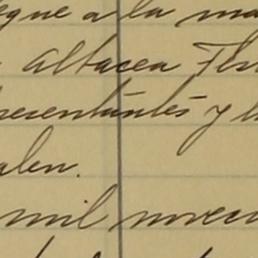 egue a la ma
altacea Fer
presentantes y l
alen.
mil novec